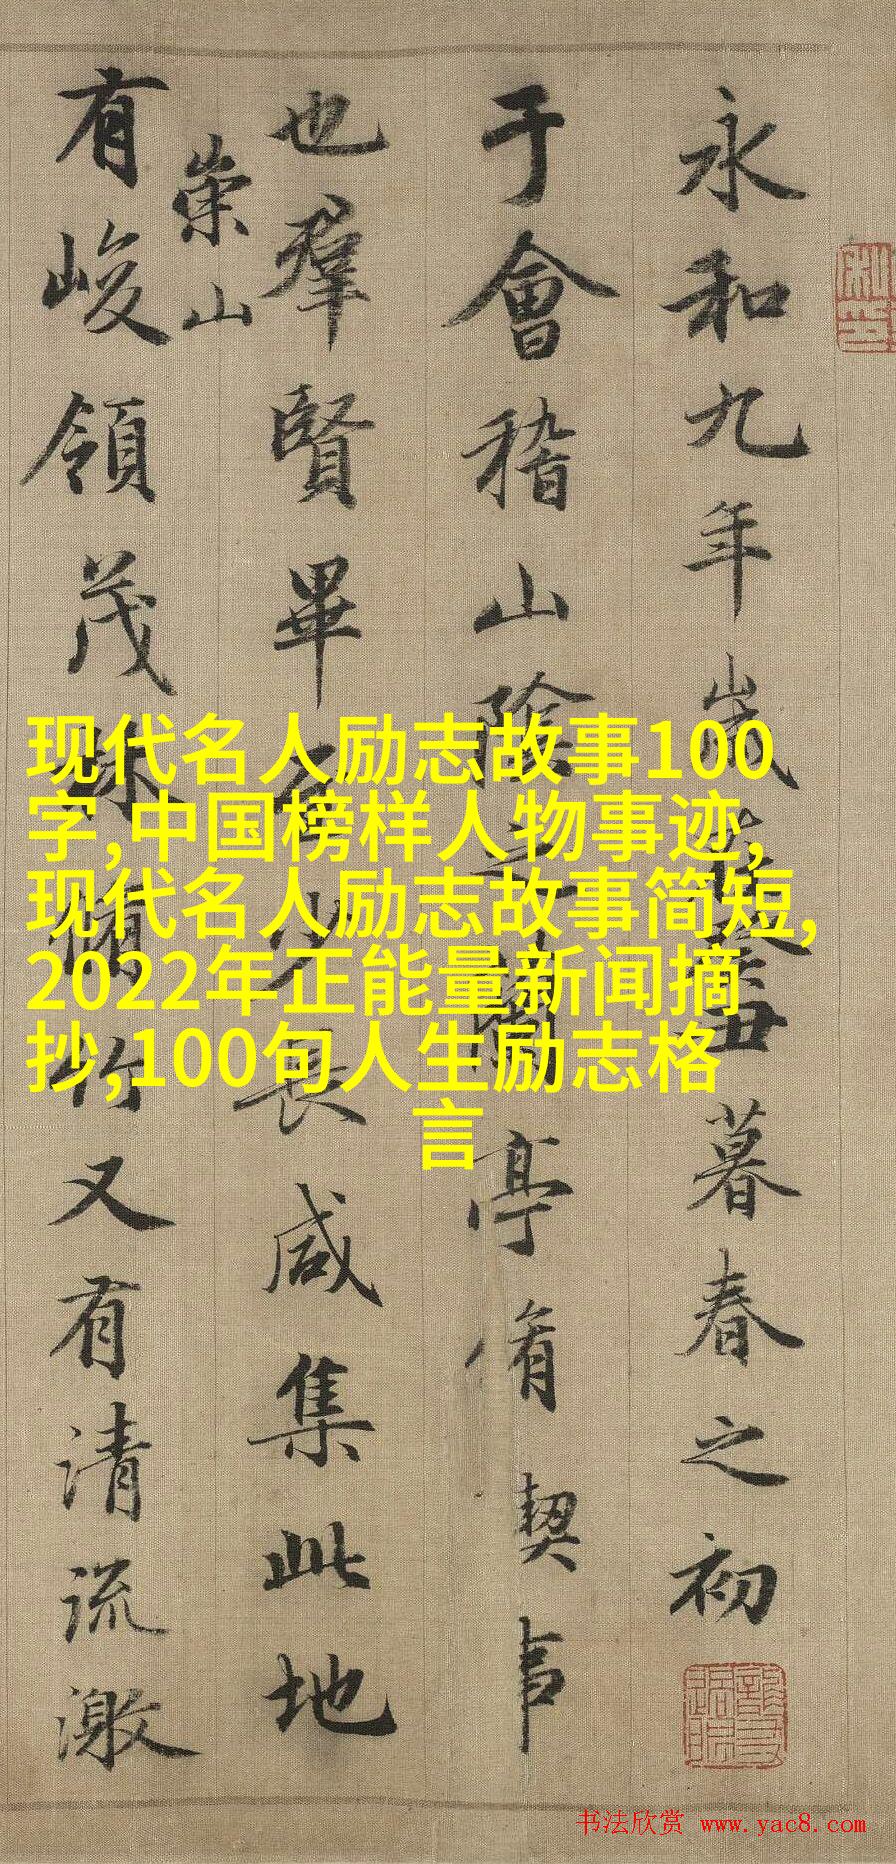 永和九年歲丑暮春之初
于會稽山陰之蘭亭脩禊事
也羣賢畢至少長咸集此地
有崇山峻領茂林脩竹又有清流激
现代名人励志故事100
字,中国榜样人物事迹,
现代名人励志故事简短,
2022年正能量新闻摘
抄,100句人生励志格
言
书法欣赏 www.yac8.com